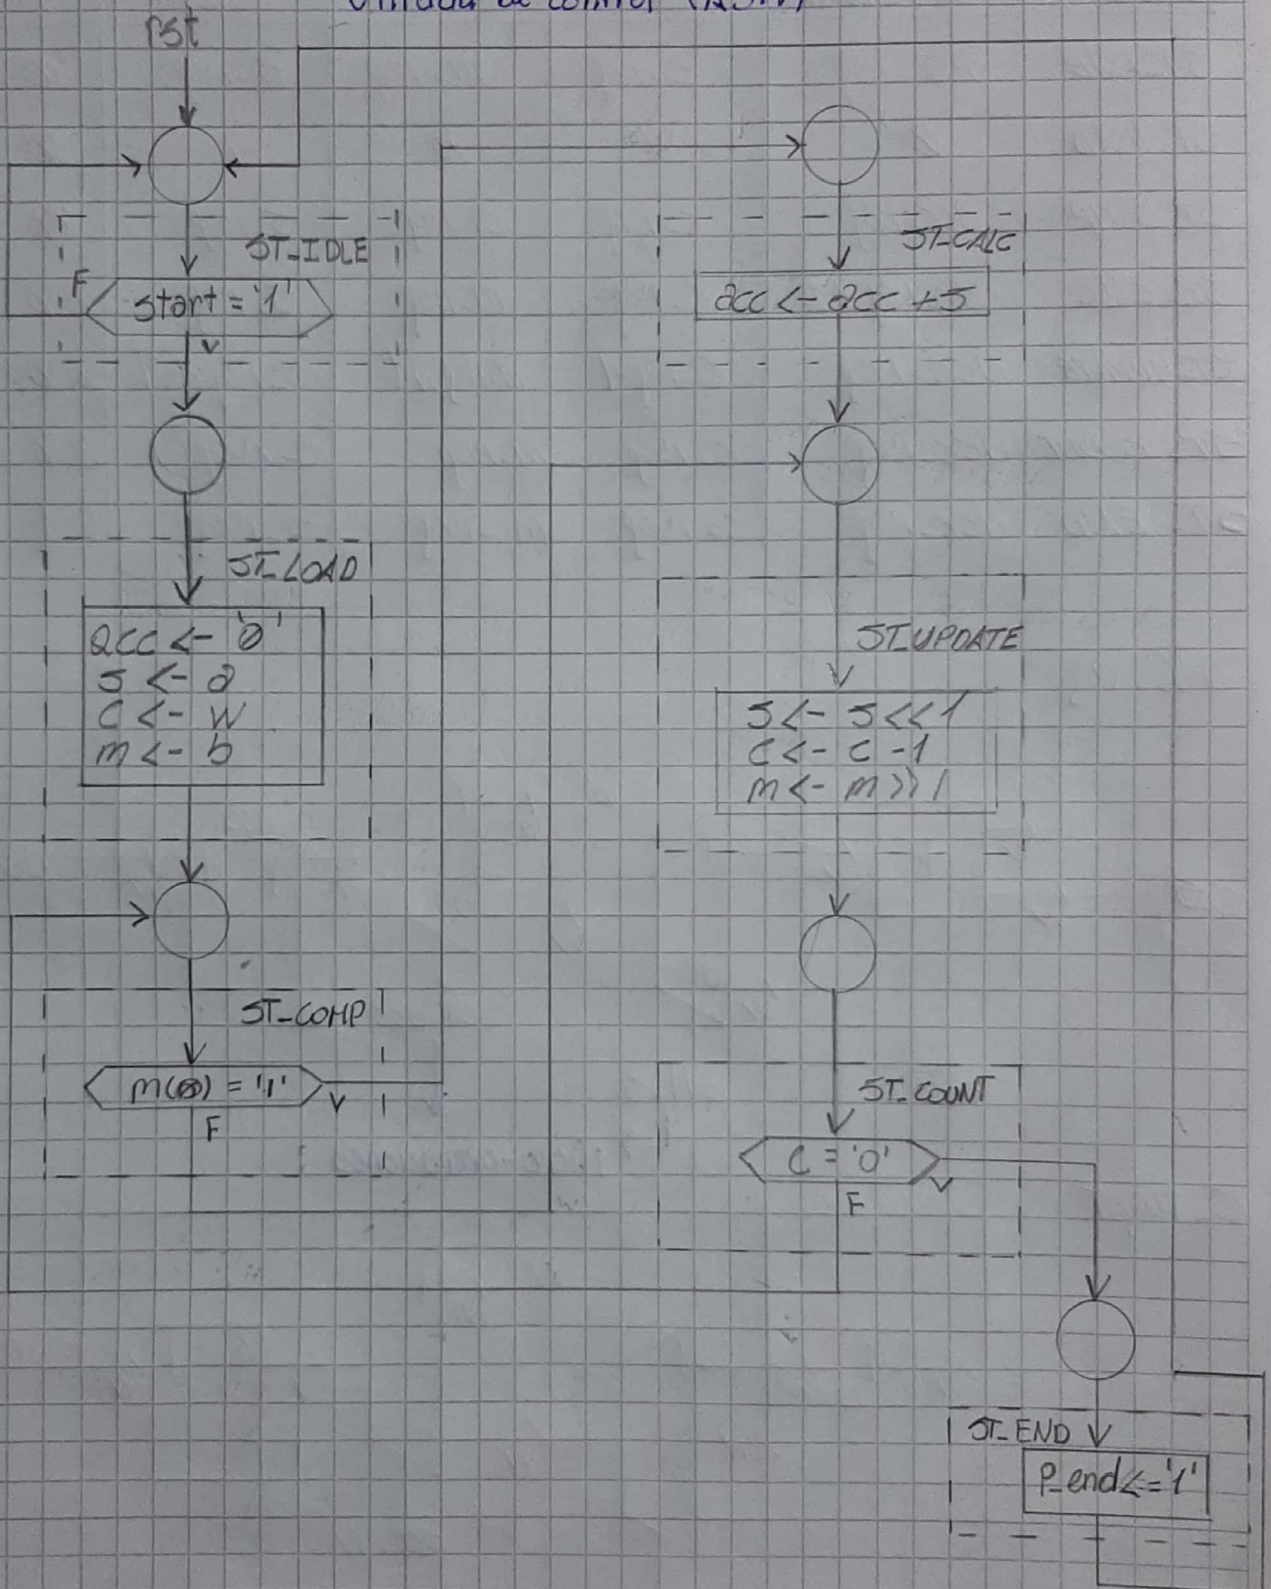 Unidad de control (ASM)
rst
ST_IDLE
F
start = '1'
V
ST_LOAD
acc <- '0'
s <- a
c <- W
m <- b
ST_COMP
m(0) = '1'
V
F
ST_CALC
acc <- acc + s
ST_UPDATE
s <- s << 1
c <- c - 1
m <- m >> 1
ST_COUNT
c = '0'
V
F
ST_END
P_end <= '1'